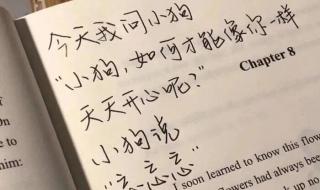 今天我问小狗
"小狗,如何才能像你一样
天天开心呢?"
小狗说
"忘忘忘"
Chapter 8
I soon learned to know this flow
owers had always been
him: